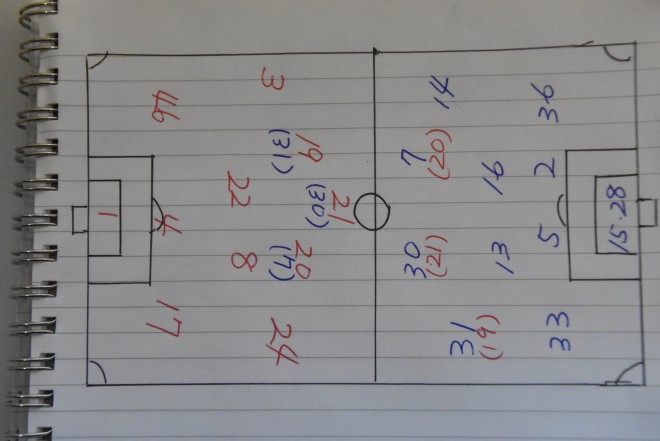 21
(30)
19 20
(31) (7)
3 24
22 8
46 4 17
1
30 7
(21) (20)
31 14
(19)
13 16
33 5 2 36
15·28